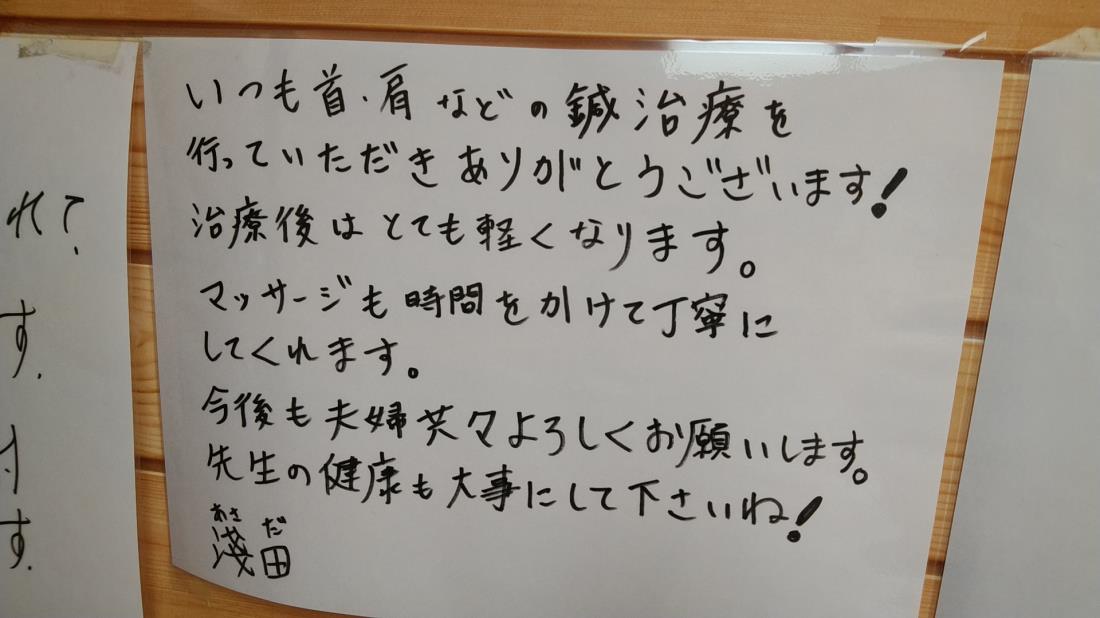 いつも首・肩などの鍼治療を
行っていただきありがとうございます!
治療後はとても軽くなります。
マッサージも時間をかけて丁寧に
してくれます。
今後も夫婦共々よろしくお願いします。
先生の健康も大事にして下さいね!
あさだ
淺田
れて、
す。
す。